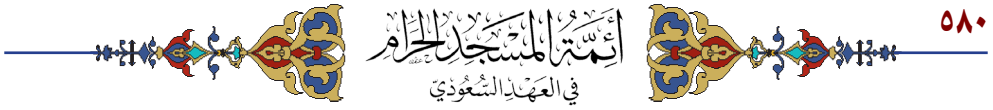 ٥٨٠
أَئِمَّةُ المَسْجِدِ الحَرَامِ
فِي العَهْدِ السُّعُودِيّ